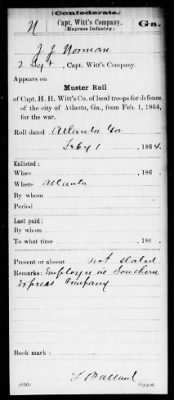 (Confederate.)
N Capt. Witt's Company, Ga.
(Express Infantry.)
J. J. Norman
2 Sgt, Capt. Witt's Company.
Appears on
Muster Roll
of Capt. H. H. Witt's Co. of local troops for defence
of the city of Atlanta, Ga., from Feb. 1, 1864,
for the war.
Roll dated Atlanta Ga
Feby 1, 1864.
Enlisted:
When , 186 .
Where Atlanta
By whom
Period
Last paid:
By whom
To what time , 186 .
Present or absent not stated
Remarks: Employee in Southern
Express Company
Book mark:
Copyist.